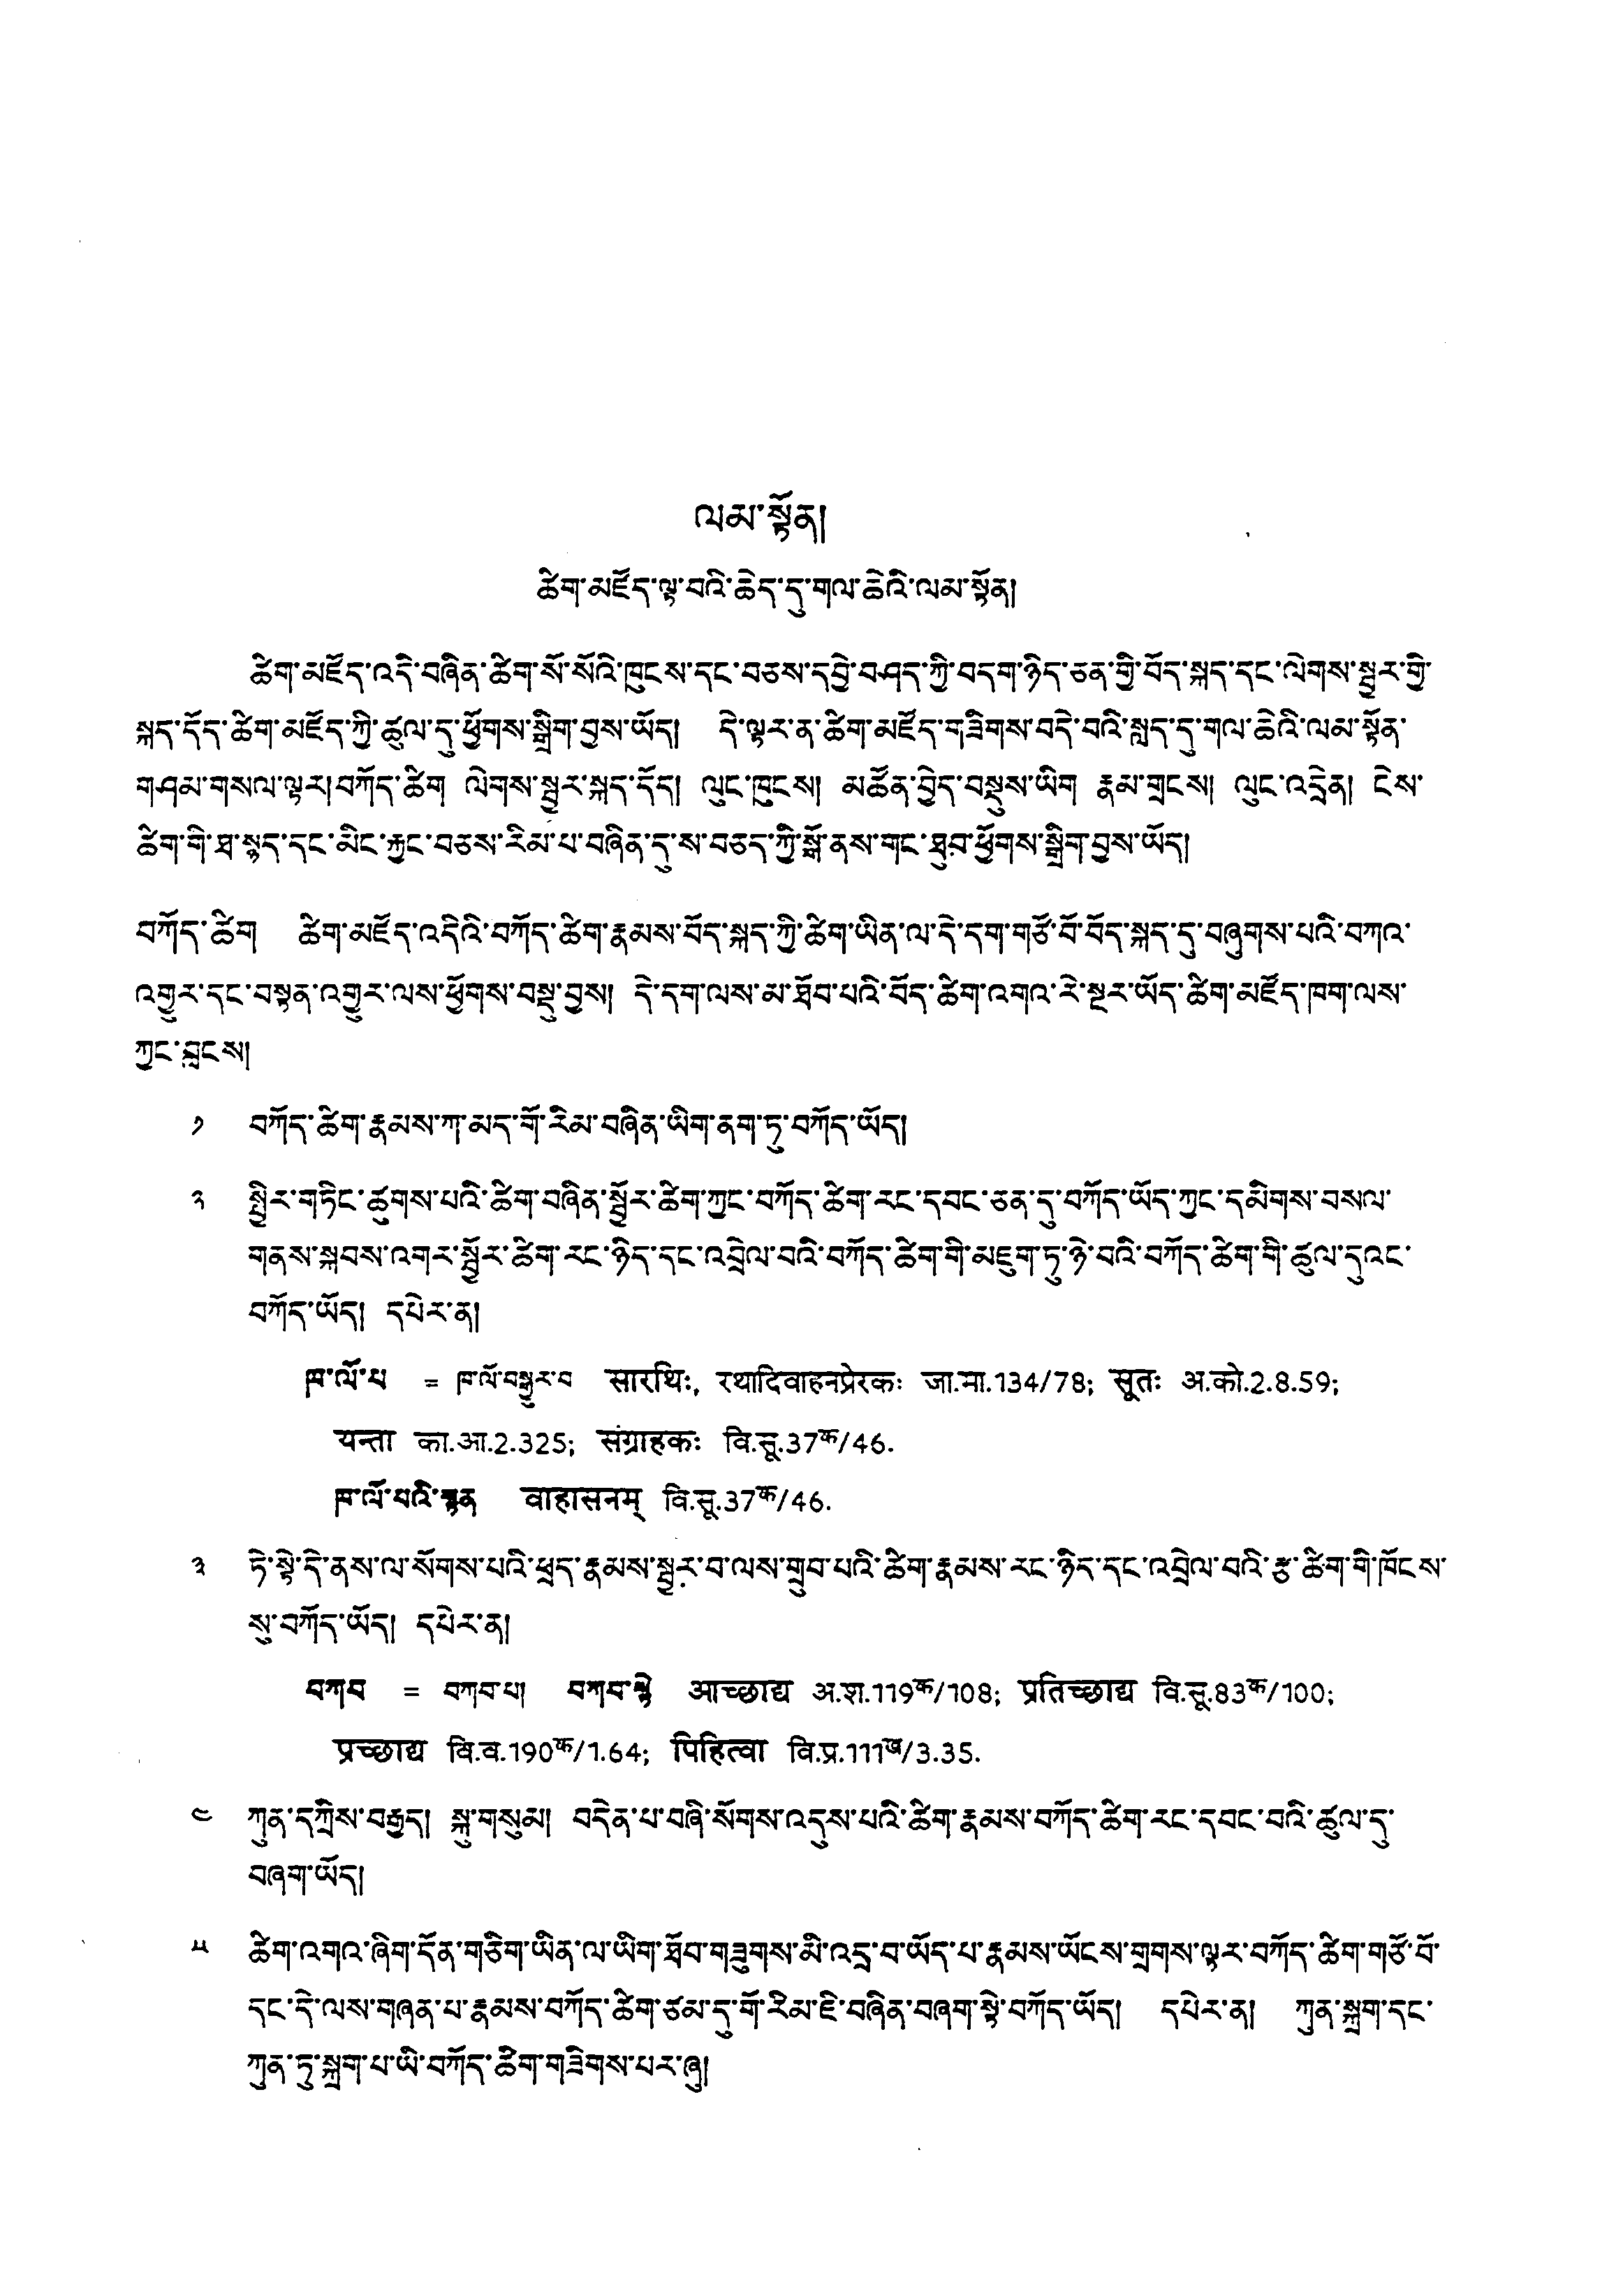 ལམ་སྟོན།
ཚིག་མཛོད་ལྟ་བའི་ཆེད་དུ་གལ་ཆེའི་ལམ་སྟོན།
ཚིག་མཛོད་འདི་བཞིན་ཚིག་སོ་སོའི་ཁུངས་དང་བཅས་དབྱེ་བཤད་ཀྱི་བདག་ཉིད་ཅན་གྱི་བོད་སྐད་དང་ལེགས་སྦྱར་གྱི་
སྐད་དོད་ཚིག་མཛོད་ཀྱི་ཚུལ་དུ་ཕྱོགས་སྒྲིག་བྱས་ཡོད། དེ་ལྟར་ན་ཚིག་མཛོད་གཟིགས་བདེ་བའི་སླད་དུ་གལ་ཆེའི་ལམ་སྟོན་
གཤམ་གསལ་ལྟར།བཀོད་ཚིག ལེགས་སྦྱར་སྐད་དོད། ལུང་ཁུངས། མཚོན་བྱེད་བསྡུས་ཡིག རྣམ་གྲངས། ལུང་འདྲེན། ངེས་
ཚིག་གི་ཐ་སྙད་དང་མིང་རྐྱང་བཅས་རིམ་པ་བཞིན་དུ་ས་བཅད་ཀྱི་སྒོ་ནས་གང་ཐུབ་ཕྱོགས་སྒྲིག་བྱས་ཡོད།
བཀོད་ཚིག ཚིག་མཛོད་འདིའི་བཀོད་ཚིག་རྣམས་བོད་སྐད་ཀྱི་ཚིག་ཡིན་ལ་དེ་དག་གཙོ་བོ་བོད་སྐད་དུ་བཞུགས་པའི་བཀའ་
འགྱུར་དང་བསྟན་འགྱུར་ལས་ཕྱོགས་བསྡུ་བྱས། དེ་དག་ལས་མ་ཐོབ་པའི་བོད་ཚིག་འགའ་རེ་སྔར་ཡོད་ཚིག་མཛོད་ཁག་ལས་
ཀྱང་བླངས།
༡ བཀོད་ཚིག་རྣམས་ཀ་མད་གོ་རིམ་བཞིན་ཡིག་ནག་ཏུ་བཀོད་ཡོད།
༢ སྤྱིར་གཏིང་ཚུགས་པའི་ཚིག་བཞིན་སྦྱོར་ཚིག་ཀྱང་བཀོད་ཚིག་རང་དབང་ཅན་དུ་བཀོད་ཡོད་ཀྱང་དམིགས་བསལ་
གནས་སྐབས་འགར་སྦྱོར་ཚིག་རང་ཉིད་དང་འབྲེལ་བའི་བཀོད་ཚིག་གི་མཇུག་ཏུ་ཉེ་བའི་བཀོད་ཚིག་གི་ཚུལ་དུའང་
བཀོད་ཡོད། དཔེར་ན།
ཁ་ལོ་པ = ཁ་ལོ་བསྒྱུར་བ सारथिः, रथादिवाहनप्रेरकः जा.मा.134/78; सूतः अ.को.2.8.59;
यन्ता का.आ.2.325; संग्राहकः वि.सू.37क/46.
ཁ་ལོ་པའི་སྟན वाहासनम् वि.सू.37क/46.
༣ ཏེ་སྟེ་དེ་ནས་ལ་སོགས་པའི་ཕྲད་རྣམས་སྦྱར་བ་ལས་གྲུབ་པའི་ཚིག་རྣམས་རང་ཉིད་དང་འབྲེལ་བའི་རྩ་ཚིག་གི་ཁོངས་
སུ་བཀོད་ཡོད། དཔེར་ན།
བཀབ = བཀབ་པ། བཀབ་སྟེ आच्छाद्य अ.श.119क/108; प्रतिच्छाद्य वि.सू.83क/100;
प्रच्छाद्य वि.व.190क/1.64; पिहित्वा वि.प्र.111ख/3.35.
༤ ཀུན་དཀྲིས་བརྒྱད། སྐུ་གསུམ། བདེན་པ་བཞི་སོགས་འདུས་པའི་ཚིག་རྣམས་བཀོད་ཚིག་རང་དབང་བའི་ཚུལ་དུ་
བཞག་ཡོད།
༥ ཚིག་འགའ་ཞིག་དོན་གཅིག་ཡིན་ལ་ཡིག་ཐོབ་གཟུགས་མི་འདྲ་བ་ཡོད་པ་རྣམས་ཡོངས་གྲགས་ལྟར་བཀོད་ཚིག་གཙོ་བོ་
དང་དེ་ལས་གཞན་པ་རྣམས་བཀོད་ཚིག་ཙམ་དུ་གོ་རིམ་ཇི་བཞིན་བཞག་སྟེ་བཀོད་ཡོད། དཔེར་ན། ཀུན་སྐྲག་དང་
ཀུན་ཏུ་སྐྲག་པ་ཡི་བཀོད་ཚིག་གཟིགས་པར་ཞུ།